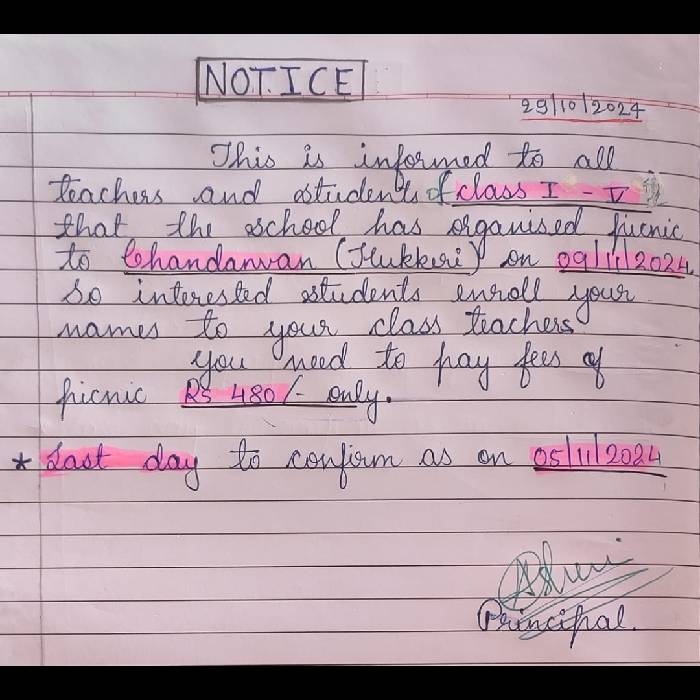 NOTICE
29/10/2024
This is informed to all
teachers and students of class I - V
that the school has organised picnic
to Chandanvan (Hukkeri) on 09/11/2024.
So interested students enroll your
names to your class teachers
you need to pay fees of
picnic Rs 480/- only.
* Last day to confirm as on 05/11/2024
Principal.